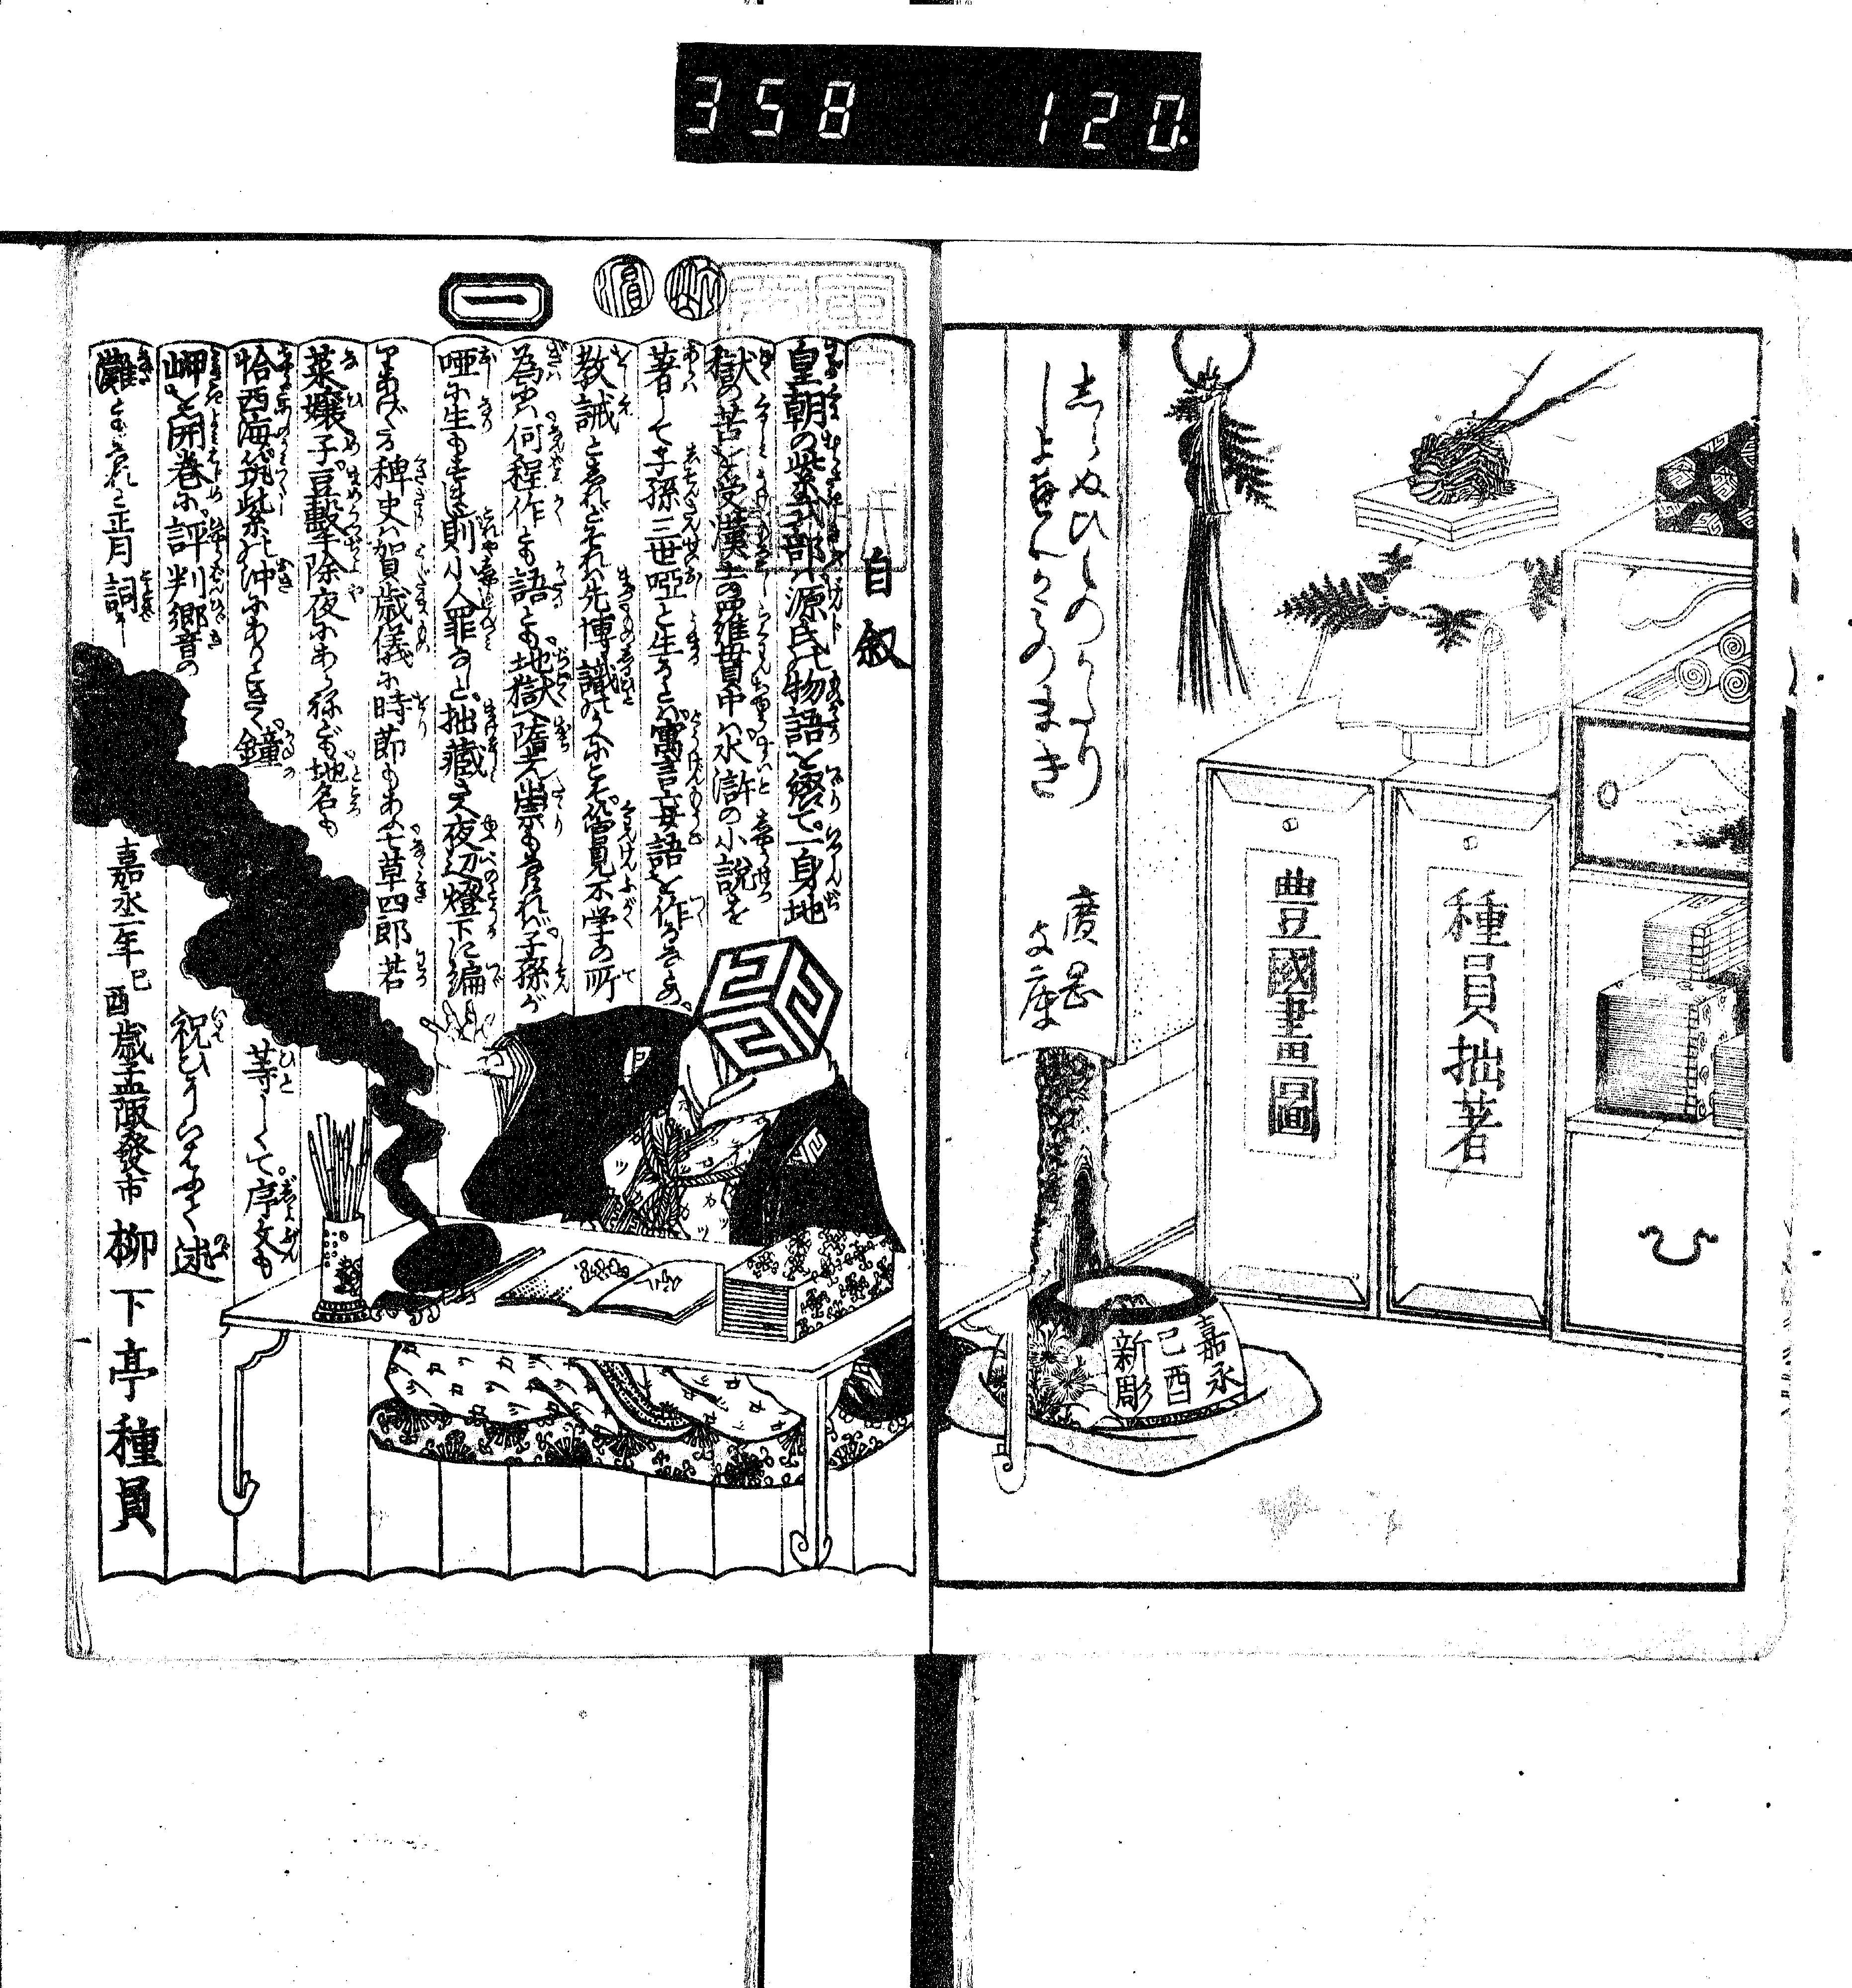 358 120.
しらぬひものがたり
しよへんかみのまき
廣岡
文庫
種員拙著
豊國畫圖
嘉永
己酉
新彫
一
自叙
皇朝の紫式部ハ源氏物語を綴て一身地
獄の苦を受漢土の羅貫中ハ水滸の小説を
著して子孫三世唖と生るとハ寓言妄語を作るものゝ
教誡となれどそれハ先博識のうへにこそ管見不学の所
為にハ何程作とも語とも地獄へ陸光崇もなけれバ子孫が
唖に生もせじ則小人罪なしと拙蔵さえ夜辺燈下に編
りあげる稗史ハ賀歳儀に時節もあふ七草四郎若
菜孃子豆撃除夜にあらねども地名も
恰西海筑紫の沖にありときく鐘の
岬を開巻に評判郷音の
等しくて序文も
灘ともなれと正月詞
祝ひまゐらせて述
嘉永二年己酉歳孟陬發市
柳下亭種員